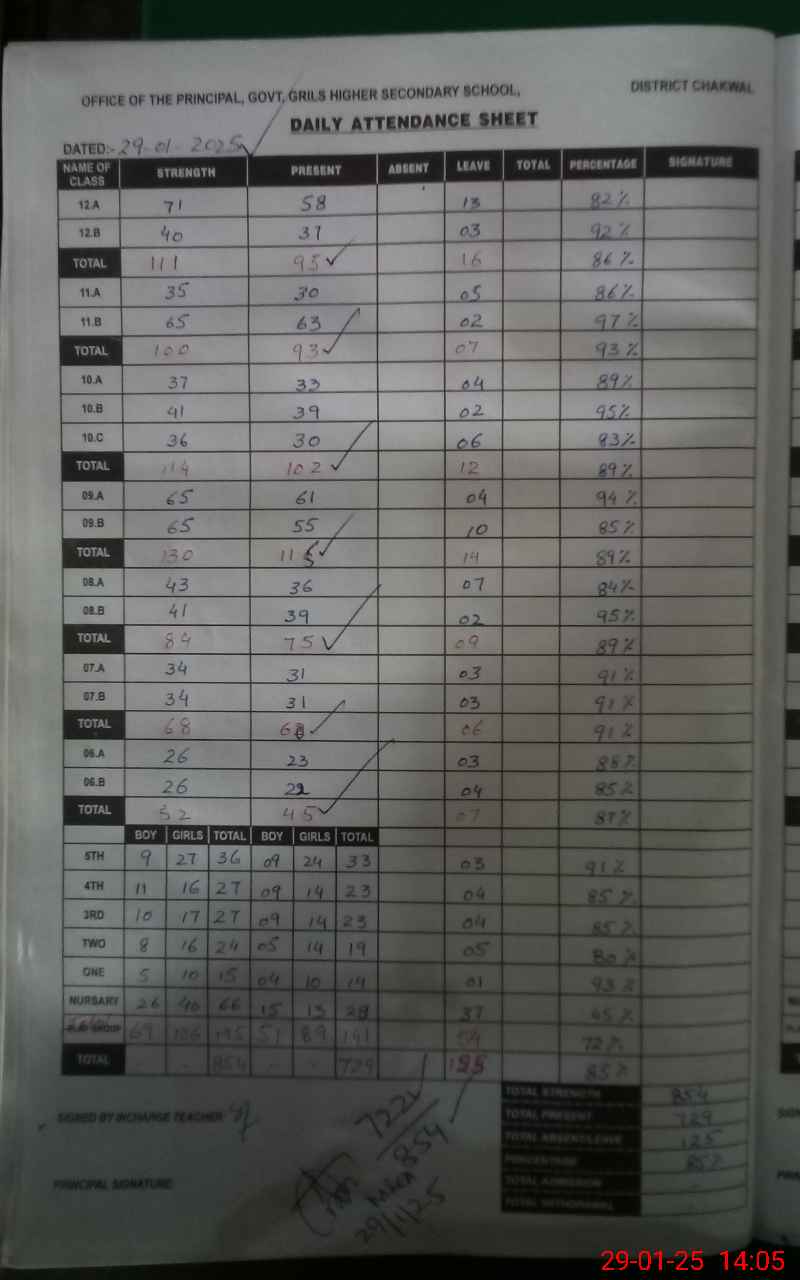 OFFICE OF THE PRINCIPAL, GOVT, GRILS HIGHER SECONDARY SCHOOL, DISTRICT CHAKWAL
DAILY ATTENDANCE SHEET
DATED:- 29-01-2025
NAME OF CLASS STRENGTH PRESENT ABSENT LEAVE TOTAL PERCENTAGE SIGNATURE
12.A 71 58 13 82%
12.B 40 37 03 92%
TOTAL 111 95 16 86%
11.A 35 30 05 86%
11.B 65 63 02 97%
TOTAL 100 93 07 93%
10.A 37 33 04 89%
10.B 41 39 02 95%
10.C 36 30 06 83%
TOTAL 114 102 12 89%
09.A 65 61 04 94%
09.B 65 55 10 85%
TOTAL 130 115 14 89%
08.A 43 36 07 84%
08.B 41 39 02 95%
TOTAL 84 75 09 89%
07.A 34 31 03 91%
07.B 34 31 03 91%
TOTAL 68 62 06 91%
06.A 26 23 03 88%
06.B 26 22 04 85%
TOTAL 52 45 07 87%
BOY GIRLS TOTAL BOY GIRLS TOTAL
5TH 9 27 36 09 24 33 03 91%
4TH 11 16 27 09 14 23 04 85%
3RD 10 17 27 09 14 23 04 85%
TWO 8 16 24 05 14 19 05 80%
ONE 5 10 15 04 10 14 01 93%
NURSARY 26 40 66 15 13 28 37 45%
69 195 51 89 141 54 72%
TOTAL - - 854 - - 729 125 85%
TOTAL STRENGTH 854
TOTAL PRESENT 729
TOTAL ABSENT/LEAVE 125
PERCENTAGE 85%
TOTAL ADMISSION -
TOTAL WITHDRAWAL -
SIGNED BY INCHARGE TEACHER
722
854
PRINCIPAL SIGNATURE
MREA
29/1/25
29-01-25 14:05